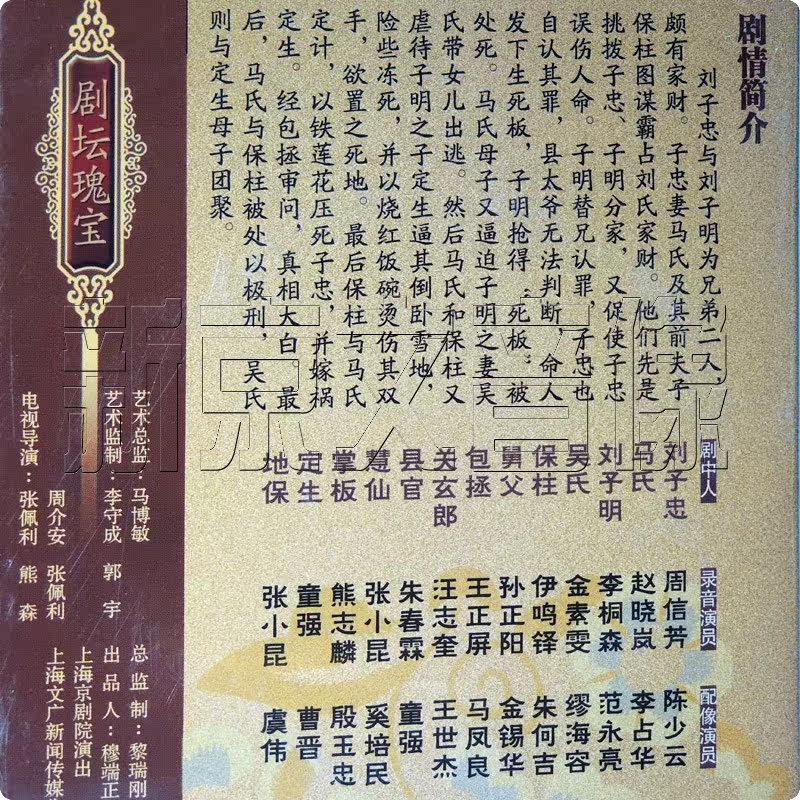 剧情简介
刘子忠与刘子明为兄弟二人，
颇有家财。子忠妻马氏及其前夫子
保柱图谋霸占刘氏家财。他们先是
挑拨子忠、子明分家，又促使子忠
误伤人命。子明替兄认罪，子忠也
自认其罪，县太爷无法判断，命人
发下生死板，子明抢得“死板”被
处死。马氏母子又逼迫子明之妻吴
氏带女儿出逃。然后马氏和保柱又
虐待子明之子定生逼其倒卧雪地，
险些冻死，并以烧红饭碗烫伤其双
手，欲置之死地。最后保柱与马氏
定计，以铁莲花压死子忠，并嫁祸
定生。经包拯审问，真相大白。最
后，马氏与保柱被处以极刑，吴氏
则与定生母子团聚。
剧中人 录音演员 配像演员
刘子忠 周信芳 陈少云
马氏 赵晓岚 李占华
刘子明 李桐森 范永亮
吴氏 金素雯 缪海容
保柱 伊鸣铎 朱何吉
舅父 孙正阳 金锡华
包拯 王正屏 马凤良
关玄郎 汪志奎 王世杰
县官 朱春霖 童强
慧仙 张小昆 奚培民
掌板 熊志麟 殷玉忠
定生 童强 曹晋
地保 张小昆 虞伟
剧坛瑰宝
艺术总监：马博敏 总监制：黎瑞刚
艺术监制：李守成 郭宇 出品人：穆端正
周介安 张佩利 上海京剧院演出
电视导演：张佩利 熊森 上海文广新闻传媒
新京文音像